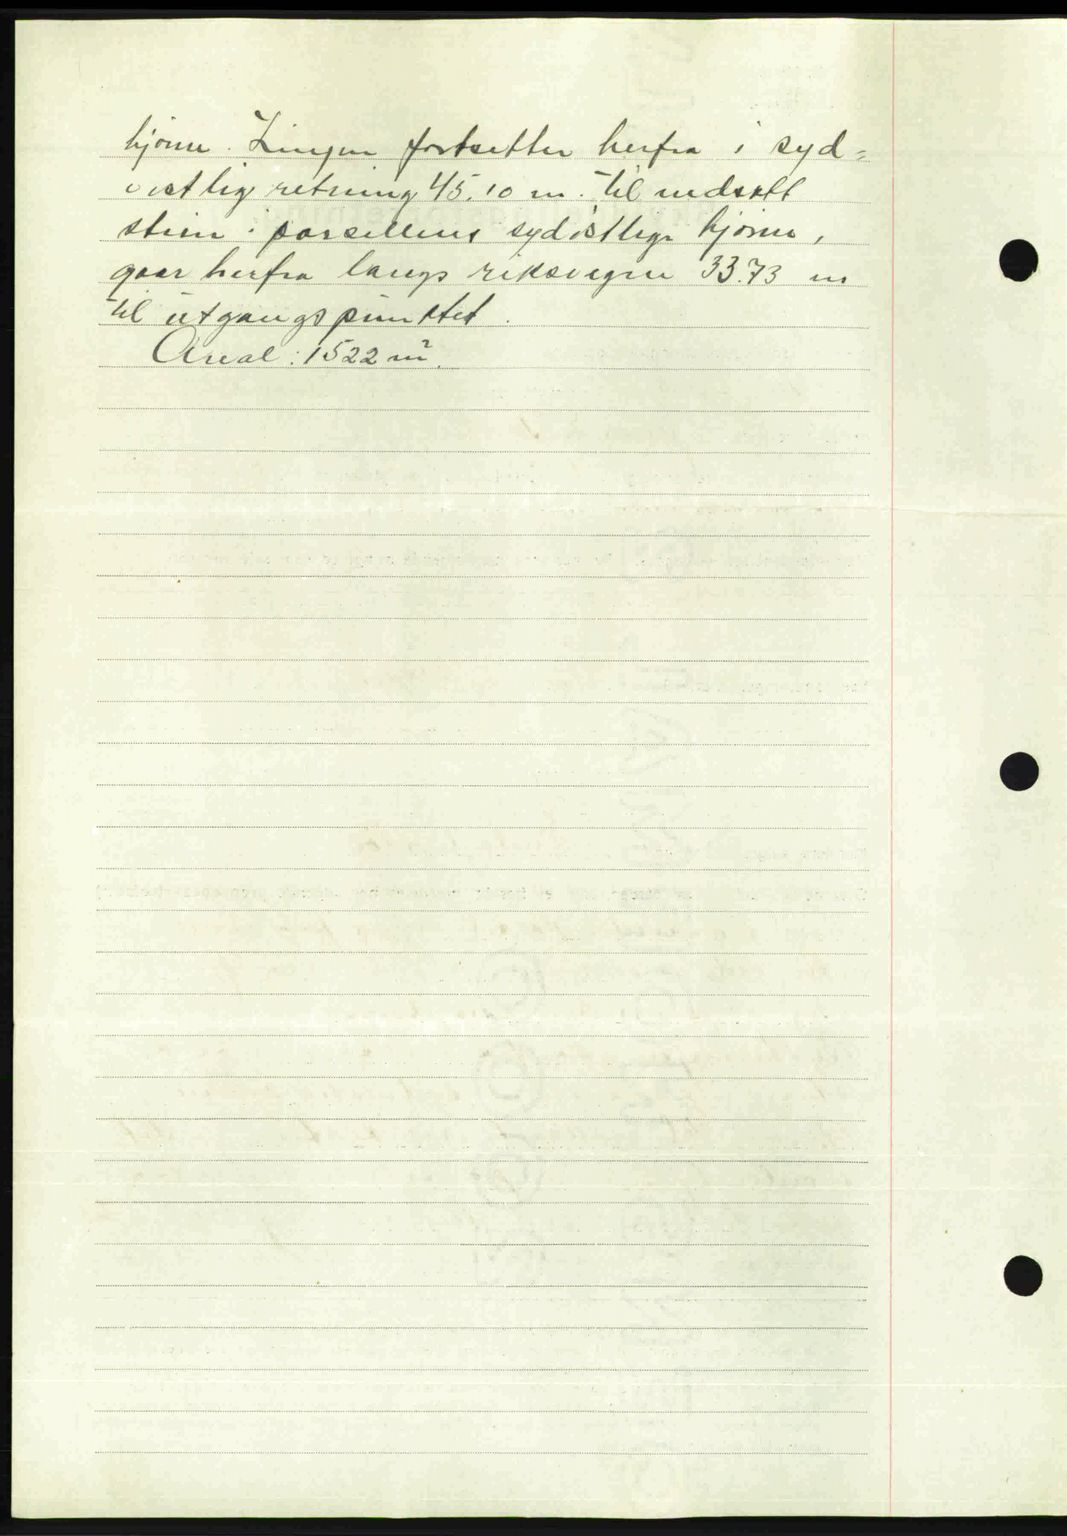 hjörne. Linjen fortsetter herfra i syd=
vestlig retning 45.10 m. til nedsatt
sten i parsellens sydöstlige hjörne,
gaar herfra langs riksvegen 33.73 m
til utgangspunktet.
Areal: 1522 m².